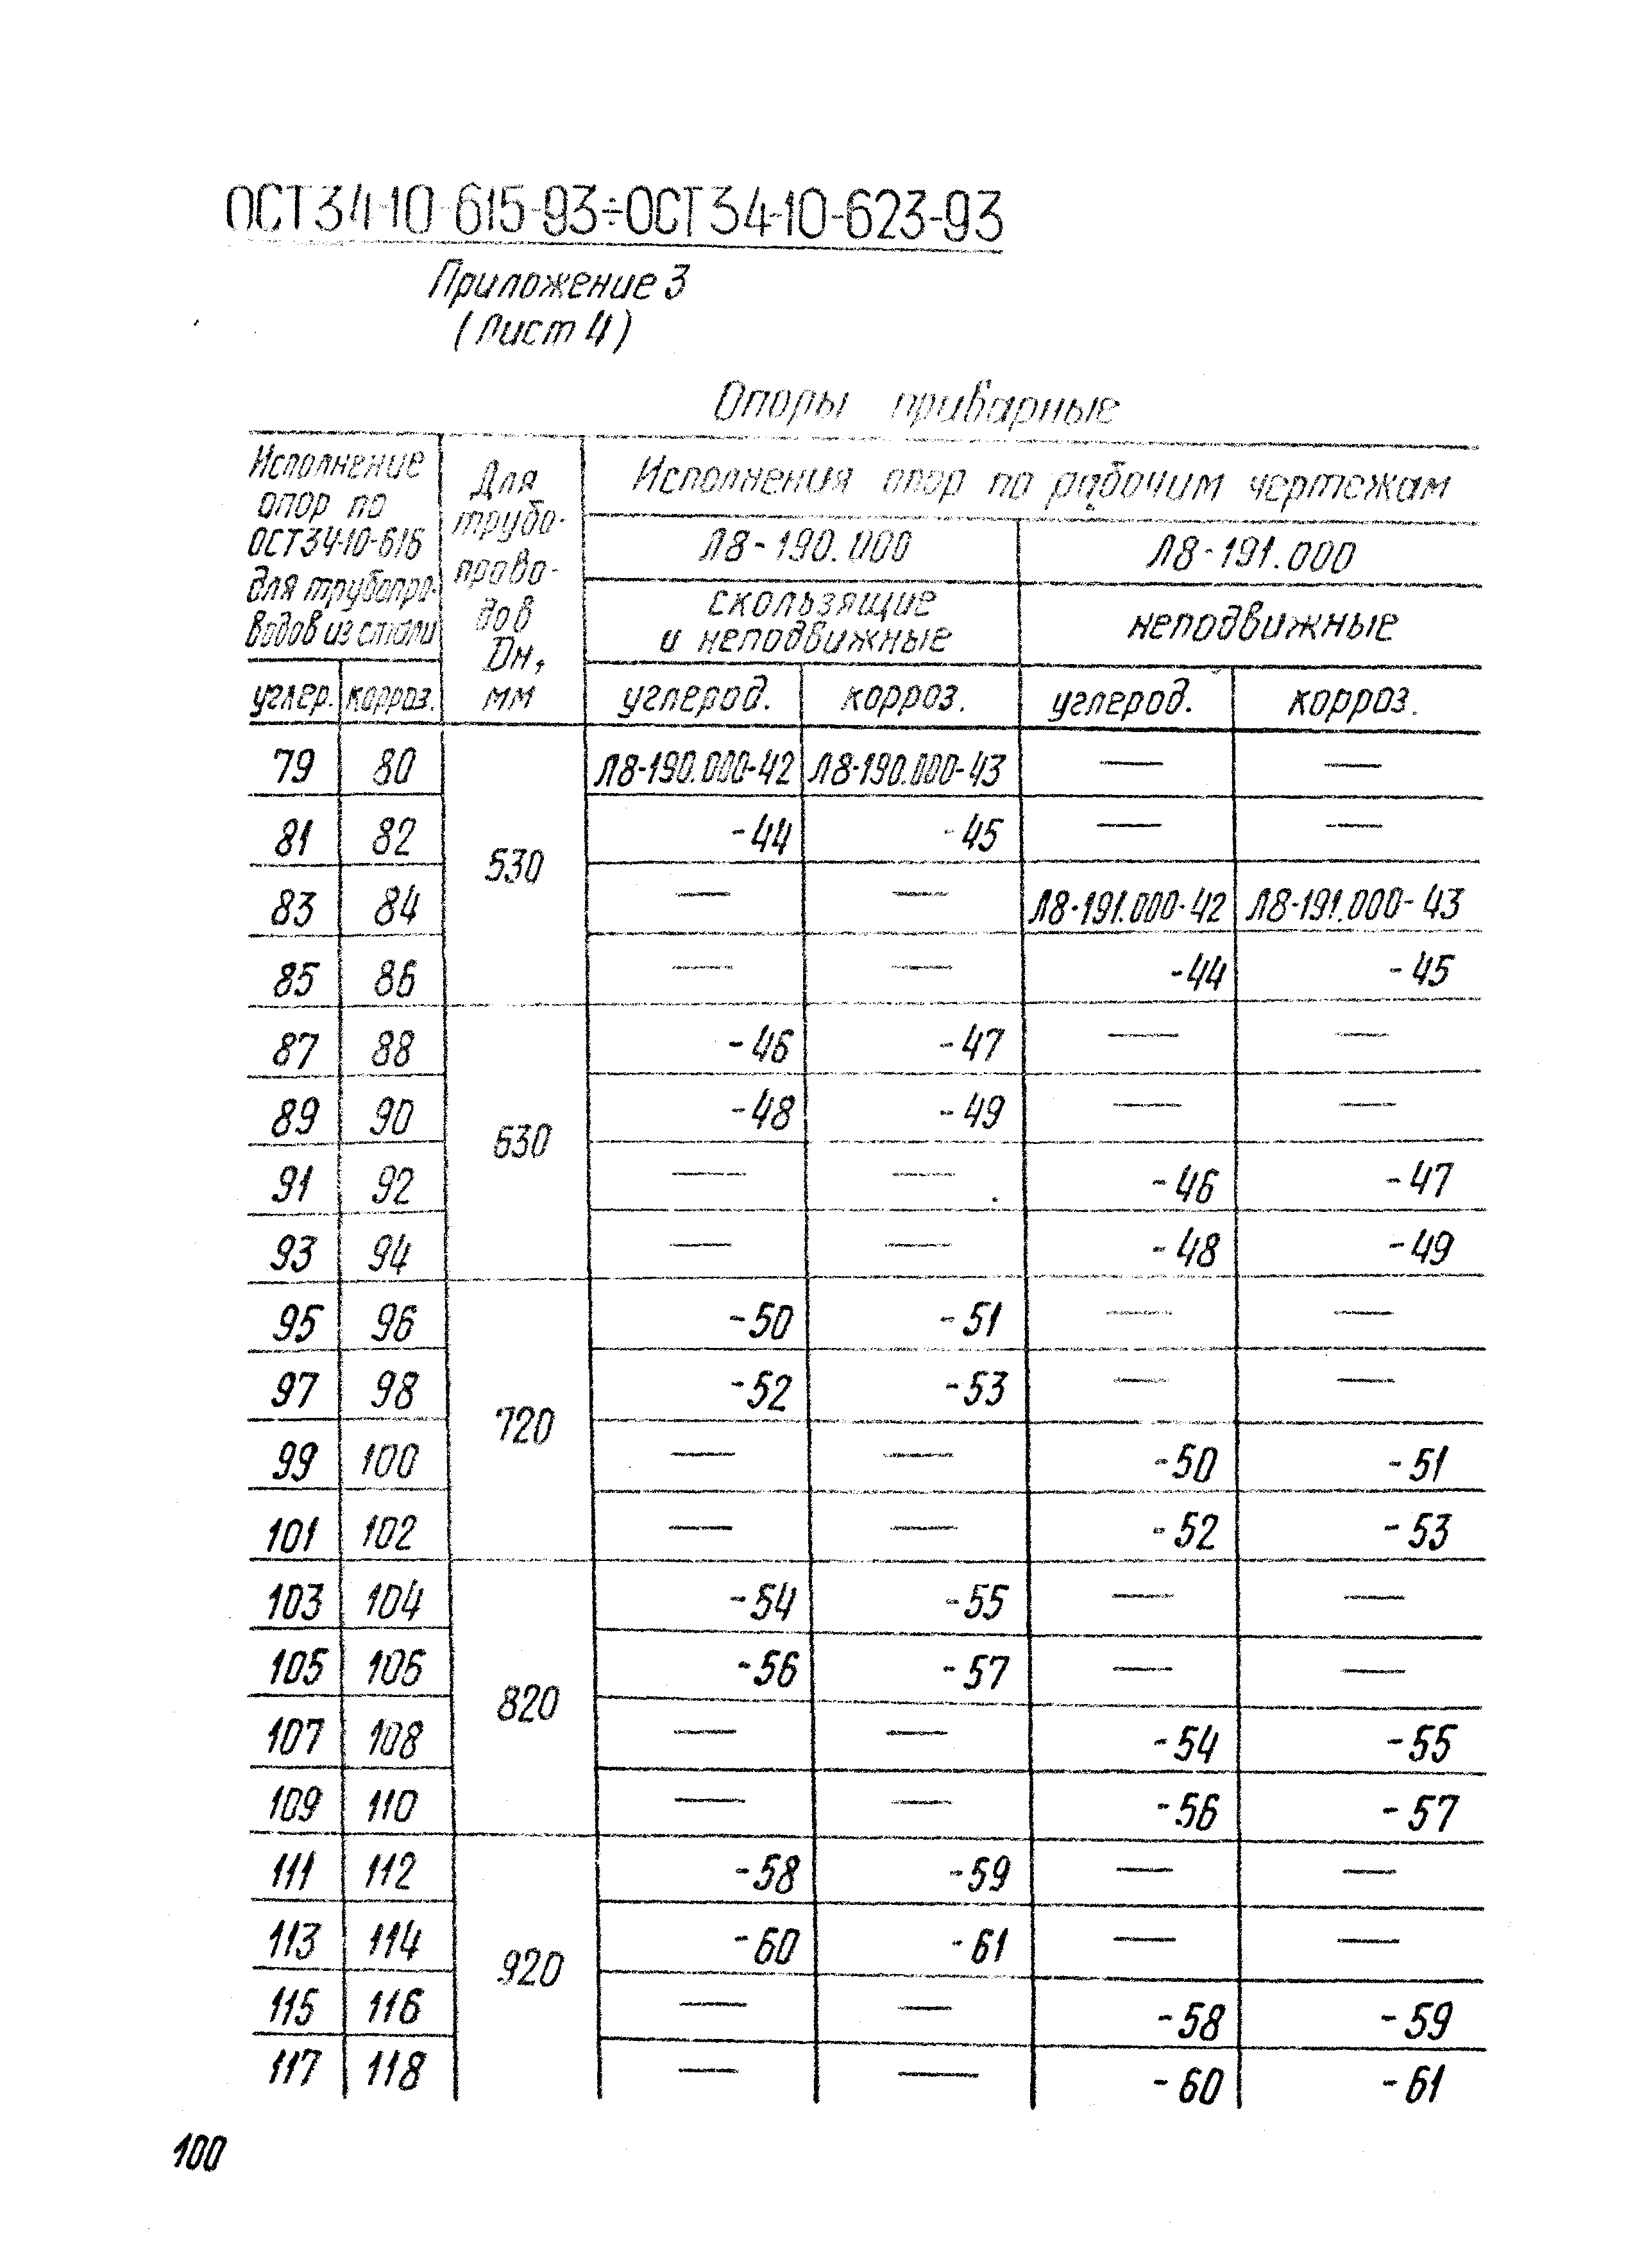 ОСТ 34-10-615-93÷ОСТ 34-10-623-93
Приложение 3
(Лист 4)
Опоры приварные
Исполнение опор по ОСТ 34-10-616 для трубопроводов из стали
Для трубопроводов Dн, мм
Исполнения опор по рабочим чертежам
Л8-190.000 Л8-191.000
скользящие и неподвижные
неподвижные
углер. корроз. углерод. корроз. углерод. корроз.
79 80 530 Л8-190.000-42 Л8-190.000-43 — —
81 82 -44 -45 — —
83 84 — — Л8-191.000-42 Л8-191.000-43
85 86 — — -44 -45
87 88 630 -46 -47 — —
89 90 -48 -49 — —
91 92 — — -46 -47
93 94 — — -48 -49
95 96 720 -50 -51 — —
97 98 -52 -53 — —
99 100 — — -50 -51
101 102 — — -52 -53
103 104 820 -54 -55 — —
105 106 -56 -57 — —
107 108 — — -54 -55
109 110 — — -56 -57
111 112 920 -58 -59 — —
113 114 -60 -61 — —
115 116 — — -58 -59
117 118 — — -60 -61
100